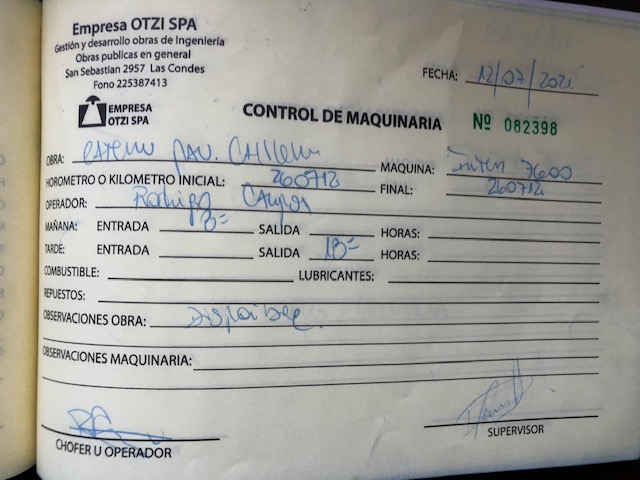 Empresa OTZI SPA
Gestión y desarrollo obras de Ingeniería
Obras publicas en general
San Sebastian 2957 Las Condes
Fono 225387413
FECHA: 12/07/2021
EMPRESA
OTZI SPA
CONTROL DE MAQUINARIA
Nº 082398
OBRA: MAQUINA: 7600
HOROMETRO O KILOMETRO INICIAL: 260712 FINAL: 260712
OPERADOR: Rodrigo
MAÑANA: ENTRADA 8= SALIDA HORAS:
TARDE: ENTRADA SALIDA 18= HORAS:
COMBUSTIBLE: LUBRICANTES:
REPUESTOS:
OBSERVACIONES OBRA:
OBSERVACIONES MAQUINARIA:
CHOFER U OPERADOR
SUPERVISOR